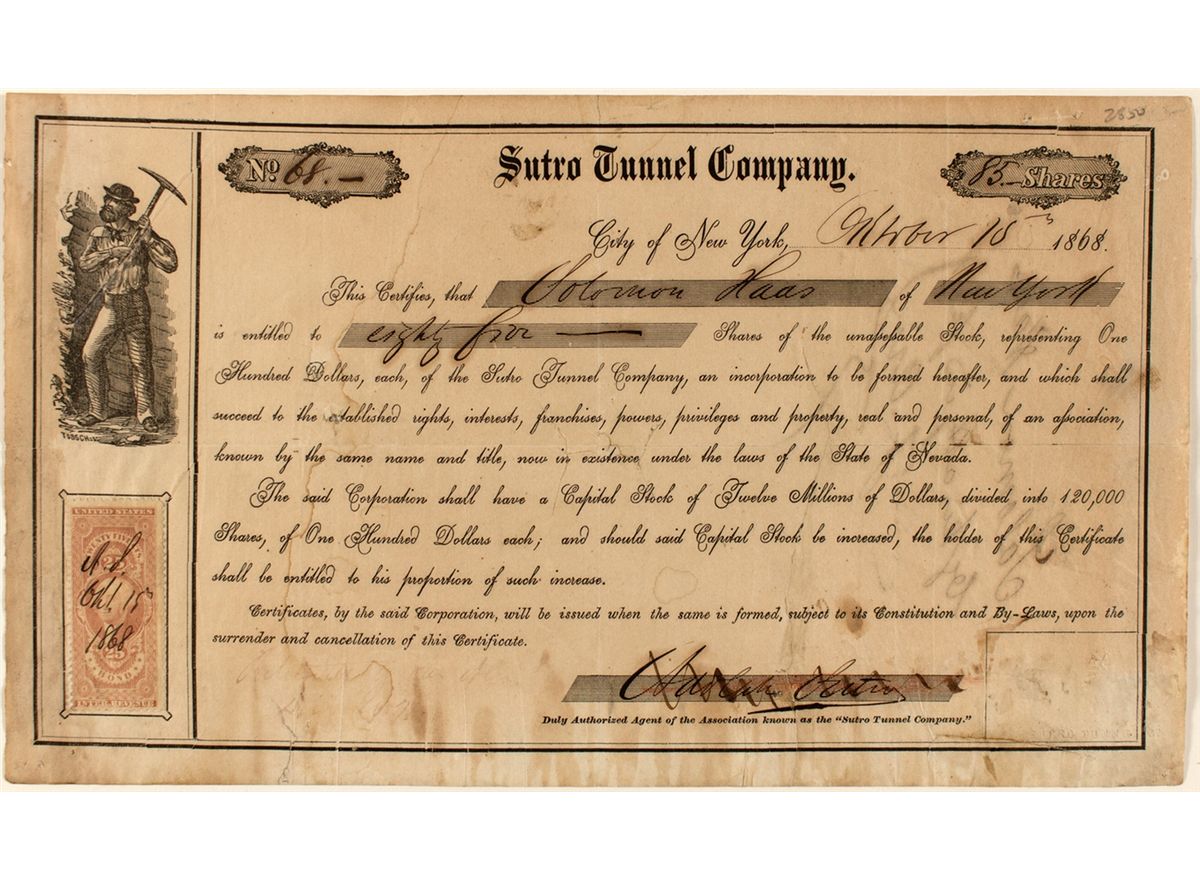 2850
No. 68.—
Sutro Tunnel Company.
85.— Shares
City of New York, October 15 1868.
This Certifies, that Solomon Haas of New York
is entitled to eighty five — Shares of the unaſseſsable Stock, representing One
Hundred Dollars, each, of the Sutro Tunnel Company, an incorporation to be formed hereafter, and which shall
succeed to the established rights, interests, franchises, powers, privileges and property, real and personal, of an aſsociation,
known by the same name and title, now in existence under the laws of the State of Nevada.
The said Corporation shall have a Capital Stock of Twelve Millions of Dollars, divided into 120,000
Shares, of One Hundred Dollars each; and should said Capital Stock be increased, the holder of this Certificate
shall be entitled to his proportion of such increase.
Certificates, by the said Corporation, will be issued when the same is formed, subject to its Constitution and By-Laws, upon the
surrender and cancellation of this Certificate.
Adolph Sutro
Duly Authorized Agent of the Association known as the "Sutro Tunnel Company."
UNITED STATES
A. S.
Okt. 15
1868
25
BOND
INTER. REVENUE